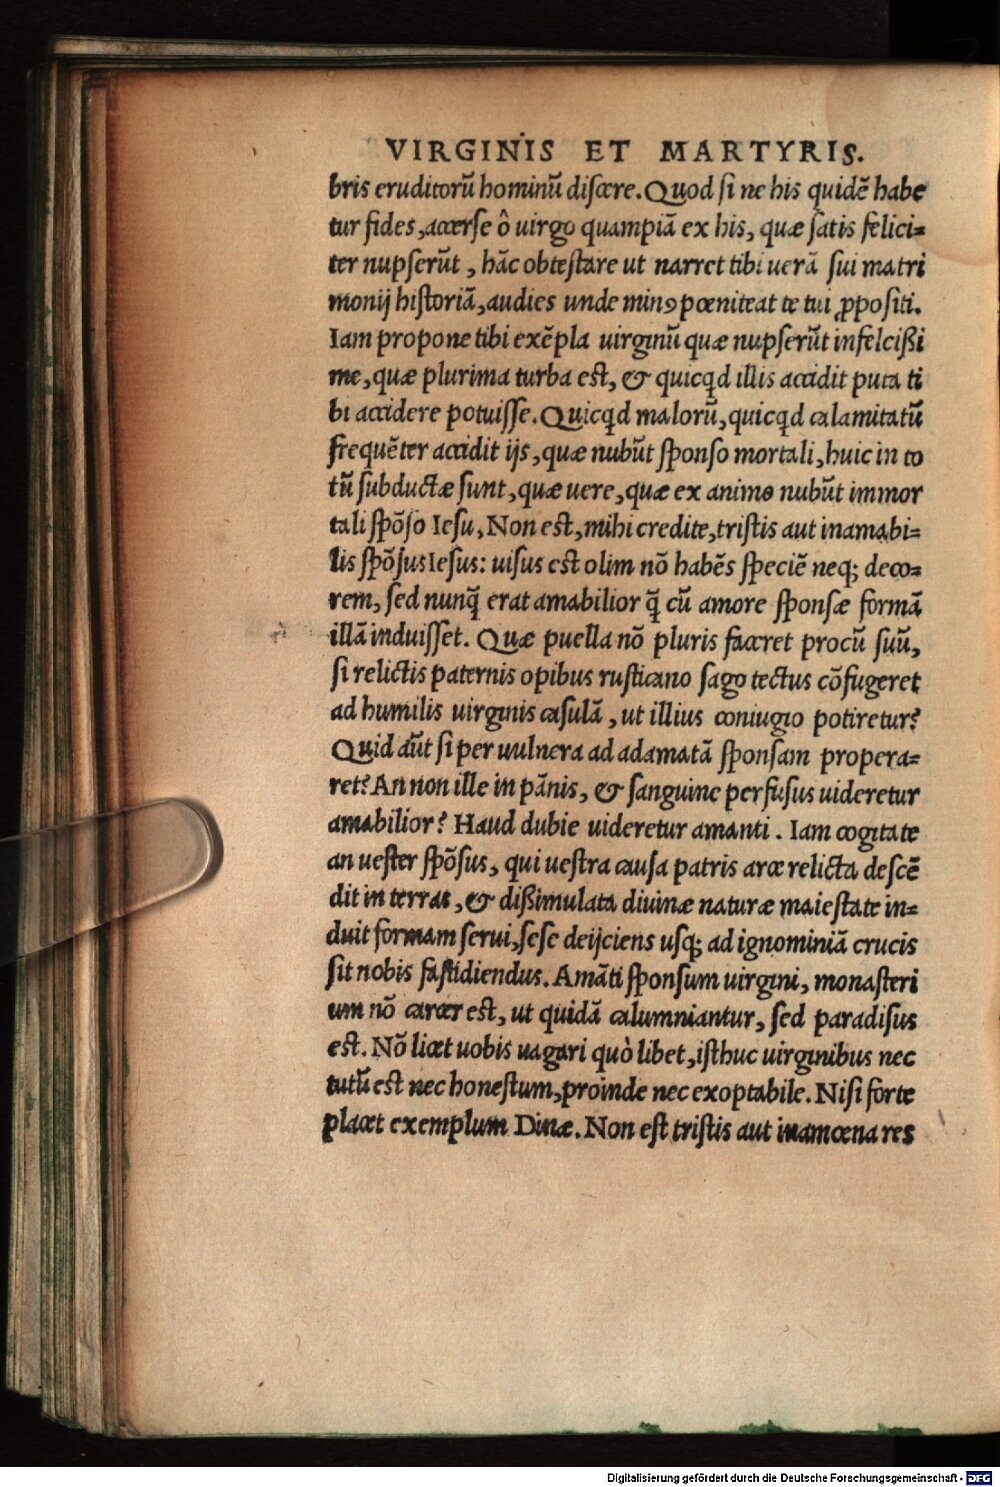 VIRGINIS ET MARTYRIS.
bris eruditorũ hominũ discere. Quod si ne his quidẽ habe
tur fides, accerse ô uirgo quampiã ex his, quæ satis felici=
ter nupserũt, hãc obtestare ut narret tibi uerã sui matri
monij historiã, audies unde minꝰ pœniteat te tui ꝓpositi.
Iam propone tibi exẽpla uirginũ quæ nupserũt infelcißi
me, quæ plurima turba est, & quicꝗd illis accidit puta ti
bi accidere potuisse. Quicꝗd malorũ, quicꝗd calamitatũ
frequẽter accidit ijs, quæ nubũt sponso mortali, huic in to
tũ subductæ sunt, quæ uere, quæ ex animo nubũt immor
tali spõso Iesu. Non est, mihi credite, tristis aut inamabi=
lis spõsus Iesus: uisus est olim nõ habẽs speciẽ neqꝫ deco=
rem, sed nunq̃ erat amabilior q̃ cũ amore sponsæ formã
illã induisset. Quæ puella nõ pluris faceret procũ suũ,
si relictis paternis opibus rusticano sago tectus cõfugeret
ad humilis uirginis casulã, ut illius coniugio potiretur?
Quid aũt si per uulnera ad adamatã sponsam propera=
ret? An non ille in pãnis, & sanguine perfusus uideretur
amabilior? Haud dubie uideretur amanti. Iam cogitate
an uester spõsus, qui uestra causa patris arce relicta descẽ
dit in terras, & dißimulata diuinæ naturæ maiestate in=
duit formam serui, sese deijciens usqꝫ ad ignominiã crucis
sit nobis fastidiendus. Amãti sponsum uirgini, monasteri
um nõ carcer est, ut quidã calumniantur, sed paradisus
est. Nõ licet uobis uagari quò libet, isthuc uirginibus nec
tutũ est nec honestum, proinde nec exoptabile. Nisi forte
placet exemplum Dinæ. Non est tristis aut inamœna res
Digitalisierung gefördert durch die Deutsche Forschungsgemeinschaft - DFG